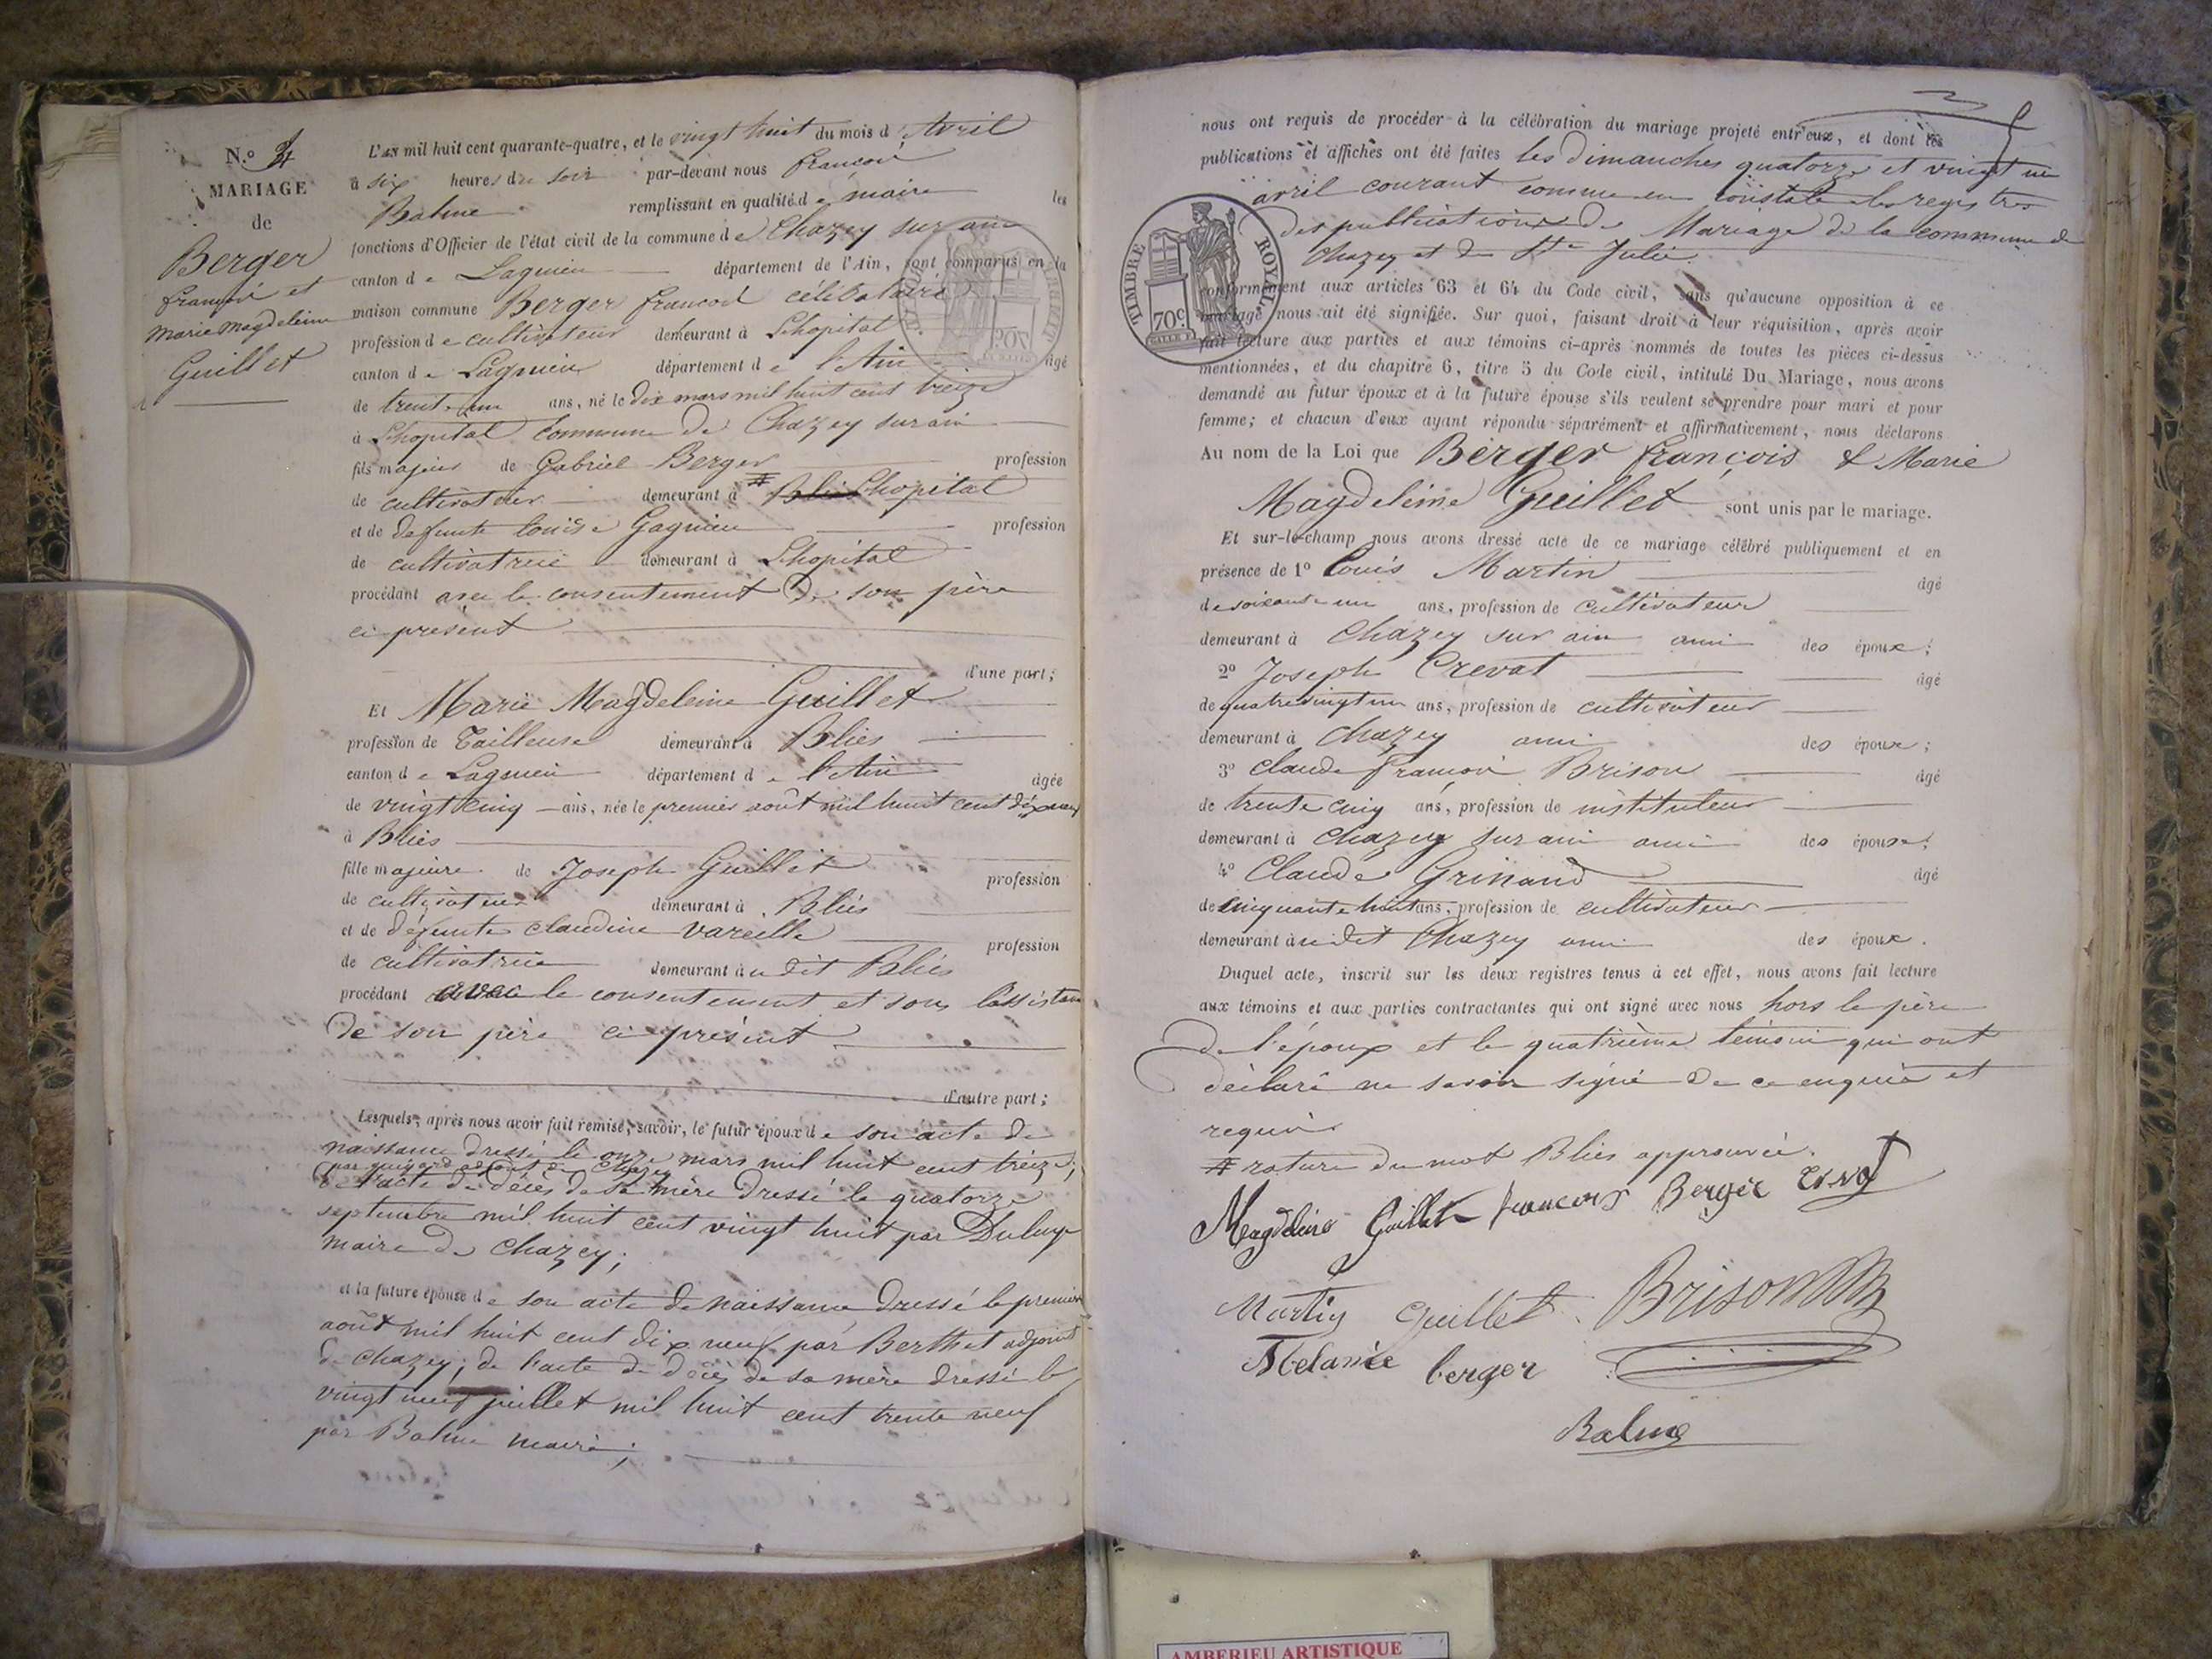 N.o 4
MARIAGE
de
Berger
françois et
Marie Magdeleine
Guillet
L'an mil huit cent quarante-quatre, et le vingt huit du mois d'Avril
à six heures du soir par-devant nous françois
Balme remplissant en qualité de maire les
fonctions d'Officier de l'état civil de la commune de Chazey sur ain
canton de Lagnieu département de l'Ain, sont comparus en la
maison commune Berger françois célibataire
profession de cultivateur demeurant à Lhopital
canton de Lagnieu département de l'Ain âgé
de trent-un ans, né le dix mars mil huit cent treize
à Lhopital commune de Chazey sur ain
fils majeur de Gabriel Berger profession
de cultivateur demeurant à # Blies Lhopital
et de défunte louise Gagnieu profession
de cultivatrice demeurant à Lhopital
procédant avec le consentement de son père
ci présent
d'une part;
Et Marie Magdeleine Guillet
profession de Tailleuse demeurant à Blies
canton de Lagnieu département de l'Ain âgée
de vingt cinq ans, née le premier août mil huit cent dix neuf
à Blies
fille majeure de Joseph Guillet profession
de cultivateur demeurant à Bliés
et de défunte claudine vareille profession
de cultivatrice demeurant au dit Bliés
procédant avec le consentement et sous l'assistance
de son père ci présent
d'autre part;
Lesquels, après nous avoir fait remise, savoir, le futur époux de son acte de
naissance dressé le onze mars mil huit cent treize;
par adjoint de Chazey
de l'acte de décès de sa mère dressé le quatorze
septembre mil huit cent vingt huit par
maire de Chazey;
et la future épouse de son acte de naissance dressé le premier
août mil huit cent dix neuf par Berthet adjoint
de Chazey; de l'acte de décès de sa mère dressé le
vingt neuf juillet mil huit cent trente neuf
par Balme maire;
nous ont requis de procéder à la célébration du mariage projeté entr'eux, et dont les
publications et affiches ont été faites les dimanches quatorze et vingt un
avril courant comme en constate les registres
des publications de Mariage de la commune de
Chazey et de Ste Julie.
TIMBRE ROYAL
70c.
conformément aux articles 63 et 64 du Code civil, sans qu'aucune opposition à ce
mariage nous ait été signifiée. Sur quoi, faisant droit à leur réquisition, après avoir
fait lecture aux parties et aux témoins ci-après nommés de toutes les pièces ci-dessus
mentionnées, et du chapitre 6, titre 5 du Code civil, intitulé Du Mariage, nous avons
demandé au futur époux et à la future épouse s'ils veulent se prendre pour mari et pour
femme; et chacun d'eux ayant répondu séparément et affirmativement, nous déclarons
Au nom de la Loi que Berger françois & Marie
Magdeleine Guillet sont unis par le mariage.
Et sur-le-champ nous avons dressé acte de ce mariage célébré publiquement et en
présence de 1o Louis Martin âgé
de soixante un ans, profession de cultivateur
demeurant à Chazey sur ain ami des époux;
2o Joseph Crevat âgé
de quatrevingt un ans, profession de cultivateur
demeurant à Chazey ami des époux;
3o Claude François Brison âgé
de trente cinq ans, profession de instituteur
demeurant à Chazey sur ain ami des époux;
4o Claude Grinand âgé
de cinquante huit ans, profession de cultivateur
demeurant au dit Chazey ami des époux.
Duquel acte, inscrit sur les deux registres tenus à cet effet, nous avons fait lecture
aux témoins et aux parties contractantes qui ont signé avec nous hors le père
de l'époux et le quatrième témoin qui ont
déclaré ne savoir signé de ce enquis et
requis
# rature du mot Blies approuvée.
Magdeleine Guillet françois Berger
Martin Guillet Brison
Melanie berger
Balme
AMBERIEU ARTISTIQUE